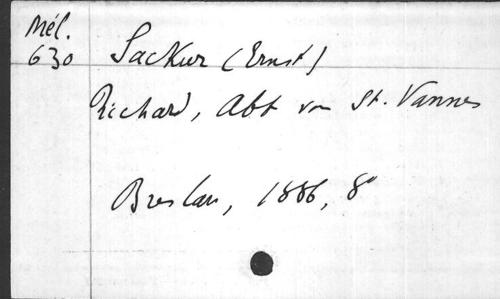 Mél.
630
Sackur (Ernst)
Richard, Abt von St. Vannes
Breslau, 1886, 8°